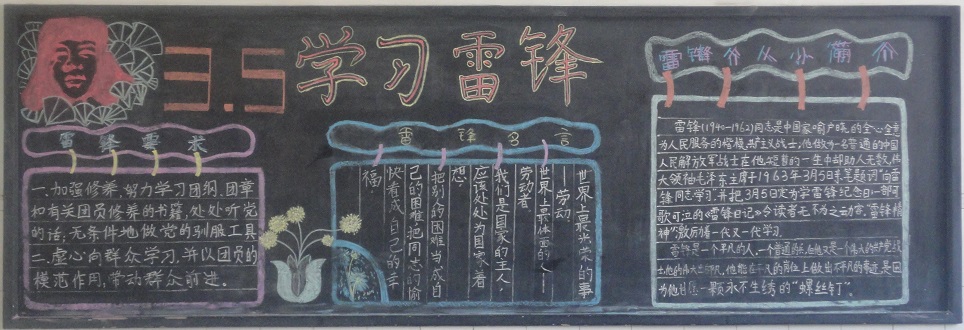 3.5学习雷锋
雷锋要求
一.加强修养.努力学习团纲.团章
和有关团员修养的书籍,处处听党
的话;无条件地做党的驯服工具
二.虚心向群众学习,并以团员的
模范作用,带动群众前进.
雷锋名言
世界上最光荣的事
——劳动
世界上最体面的人—
劳动者.
我们是国家的主人
应该处处为国家着
想
把别人的困难当成自
己的困难把同志的愉
快看成自己的幸
福
雷锋个人小简介
雷锋(1940-1962)同志是中国家喻户晓的全心全意
为人民服务的楷模,共产主义战士;他做为一名普通的中国
人民解放军战士在他短暂的一生中却助人无数,伟
大领袖毛泽东主席于1963年3月5日亲笔题词"向雷
锋同志学习".并把3月5日定为学雷锋纪念日一部可
歌可泣的《雷锋日记》令读者无不为之动容."雷锋精
神"激励着一代又一代学习.
雷锋是一个平凡的人,一个普通的兵但他又是一个伟大的共产党战
士他的伟大
他能在平凡的岗位上做出不平凡的事迹,是因
为他甘愿一颗永不生锈的"螺丝钉".